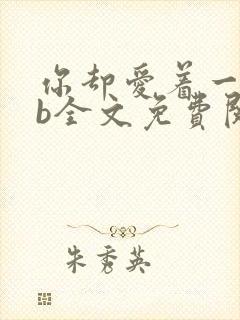 你却爱着一
b全文免费阅
朱秀英